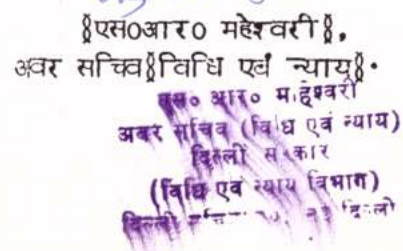 (एस०आर० महेश्वरी),
अवर सचिव(विधि एवं न्याय).
एस० आर० महेश्वरी
अवर सचिव (विधि एवं न्याय)
दिल्ली सरकार
(विधि एवं न्याय विभाग)
दिल्ली नई दिल्ली